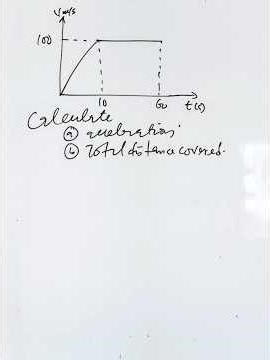 V m/s
100
10 60 t(s)
Calculate
(a) acceleration
(b) Total distance covered.